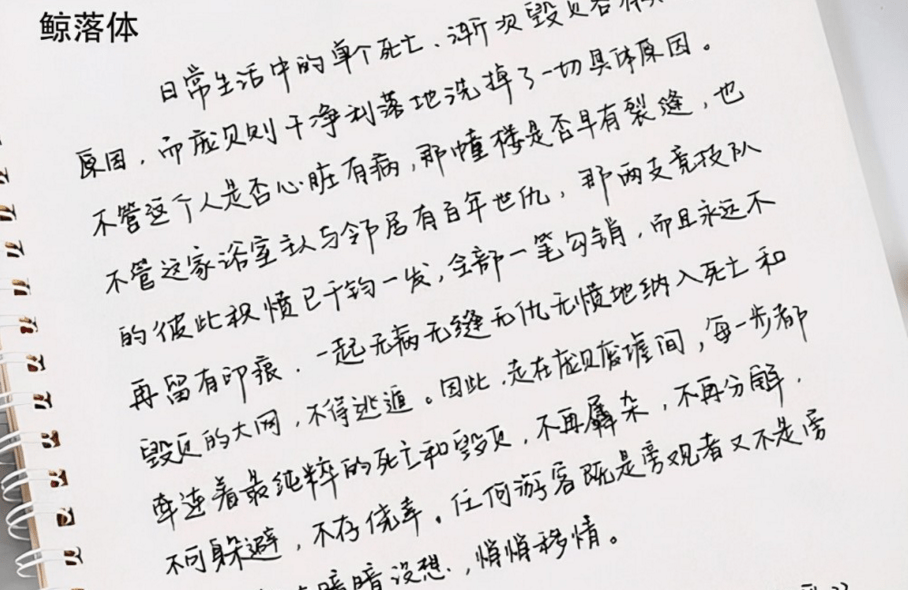 鲸落体
日常生活中的单个死亡、渐次毁灭各有
原因，而庞贝则干净利落地洗掉了一切具体原因。
不管这个人是否心脏有病，那幢楼是否早有裂缝，也
不管这家浴室主人与邻居有百年世仇，那两支竞技队
的彼此积愤已千钧一发，全部一笔勾销，而且永远不
再留有印痕．一起无病无缝无仇无愤地纳入死亡和
毁灭的大网，不得逃遁。因此，走在庞贝废墟间，每一步都
牵连着最纯粹的死亡和毁灭，不再羼杂，不再分解，
不可躲避，不存侥幸。任何游客既是旁观者又不是旁
暗暗设想，悄悄移情。